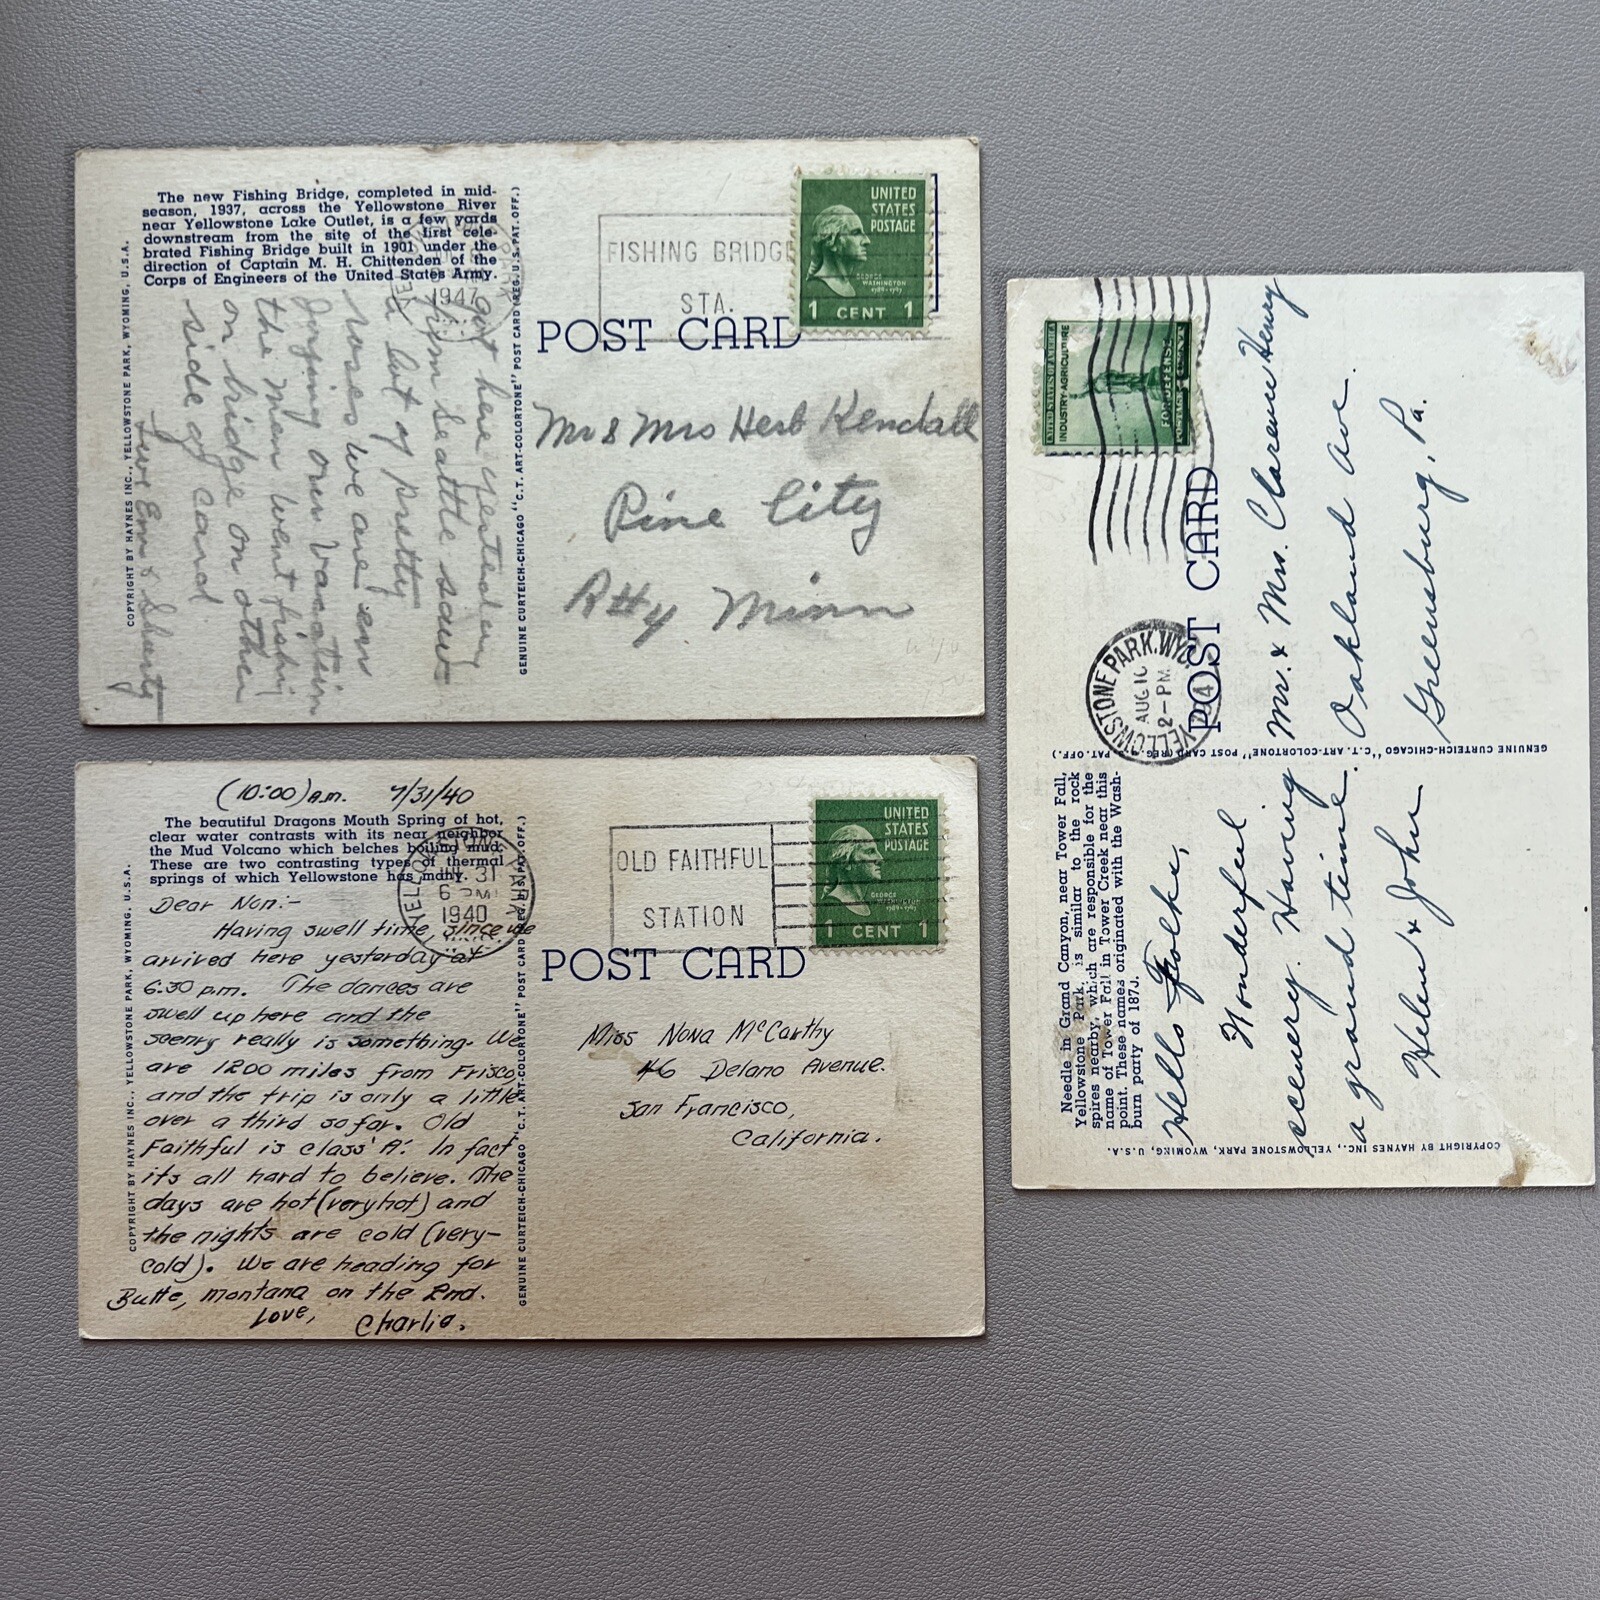 The new Fishing Bridge, completed in mid-
season, 1937, across the Yellowstone River
near Yellowstone Lake Outlet, is a few yards
downstream from the site of the first cele-
brated Fishing Bridge built in 1901 under the
direction of Captain M. H. Chittenden of the
Corps of Engineers of the United States Army.
COPYRIGHT BY HAYNES INC., YELLOWSTONE PARK, WYOMING, U.S.A.
GENUINE CURTEICH-CHICAGO "C.T. ART-COLORTONE" POST CARD (REG. U.S. PAT. OFF.)
1947
got here yesterday
from Seattle saw
a lot of pretty
roses we are en
joying our vacation
the men went fishing
on bridge on other
side of card
Love Em & Shorty
FISHING BRIDGE
STA.
UNITED
STATES
POSTAGE
GEORGE
WASHINGTON
1789-1797
1 CENT 1
POST CARD
Mr & Mrs Herb Kendall
Pine City
Minn
(10:00) a.m. 7/31/40
The beautiful Dragons Mouth Spring of hot,
clear water contrasts with its near neighbor
the Mud Volcano which belches boiling mud.
These are two contrasting types of thermal
springs of which Yellowstone has many.
COPYRIGHT BY HAYNES INC., YELLOWSTONE PARK, WYOMING, U.S.A.
GENUINE CURTEICH-CHICAGO "C.T. ART-COLORTONE" POST CARD (REG. U.S. PAT. OFF.)
31
6 PM
1940
Dear Non:-
Having swell time, since we
arrived here yesterday at
6:30 p.m. The dances are
swell up here and the
scenry really is something. We
are 1200 miles from Frisco,
and the trip is only a little
over a third so far. Old
Faithful is class 'A'. In fact
its all hard to believe. The
days are hot (very hot) and
the nights are cold (very-
cold). We are heading for
Butte, Montana on the 2nd.
Love,
Charlie.
OLD FAITHFUL
STATION
UNITED
STATES
POSTAGE
GEORGE
WASHINGTON
1789-1797
1 CENT 1
POST CARD
Miss Nona McCarthy
46 Delano Avenue.
San Francisco,
California.
Needle in Grand Canyon, near Tower Fall,
Yellowstone Park, is similar to the rock
spires nearby, which are responsible for the
name of Tower Fall in Tower Creek near this
point. These names originated with the Wash-
burn party of 1870.
COPYRIGHT BY HAYNES INC., YELLOWSTONE PARK, WYOMING, U.S.A.
GENUINE CURTEICH-CHICAGO "C.T. ART-COLORTONE" POST CARD (REG. U.S. PAT. OFF.)
Hello Folks,
Wonderful
scenery. Having
a grand time.
Helen & John
YELLOWSTONE PARK, WYO.
AUG 10
2-PM
UNITED STATES OF AMERICA
INDUSTRY-AGRICULTURE
FOR DEFENSE
POST CARD
Mr. & Mrs. Clarence Henry
Oakland Ave.
Greensburg, Pa.